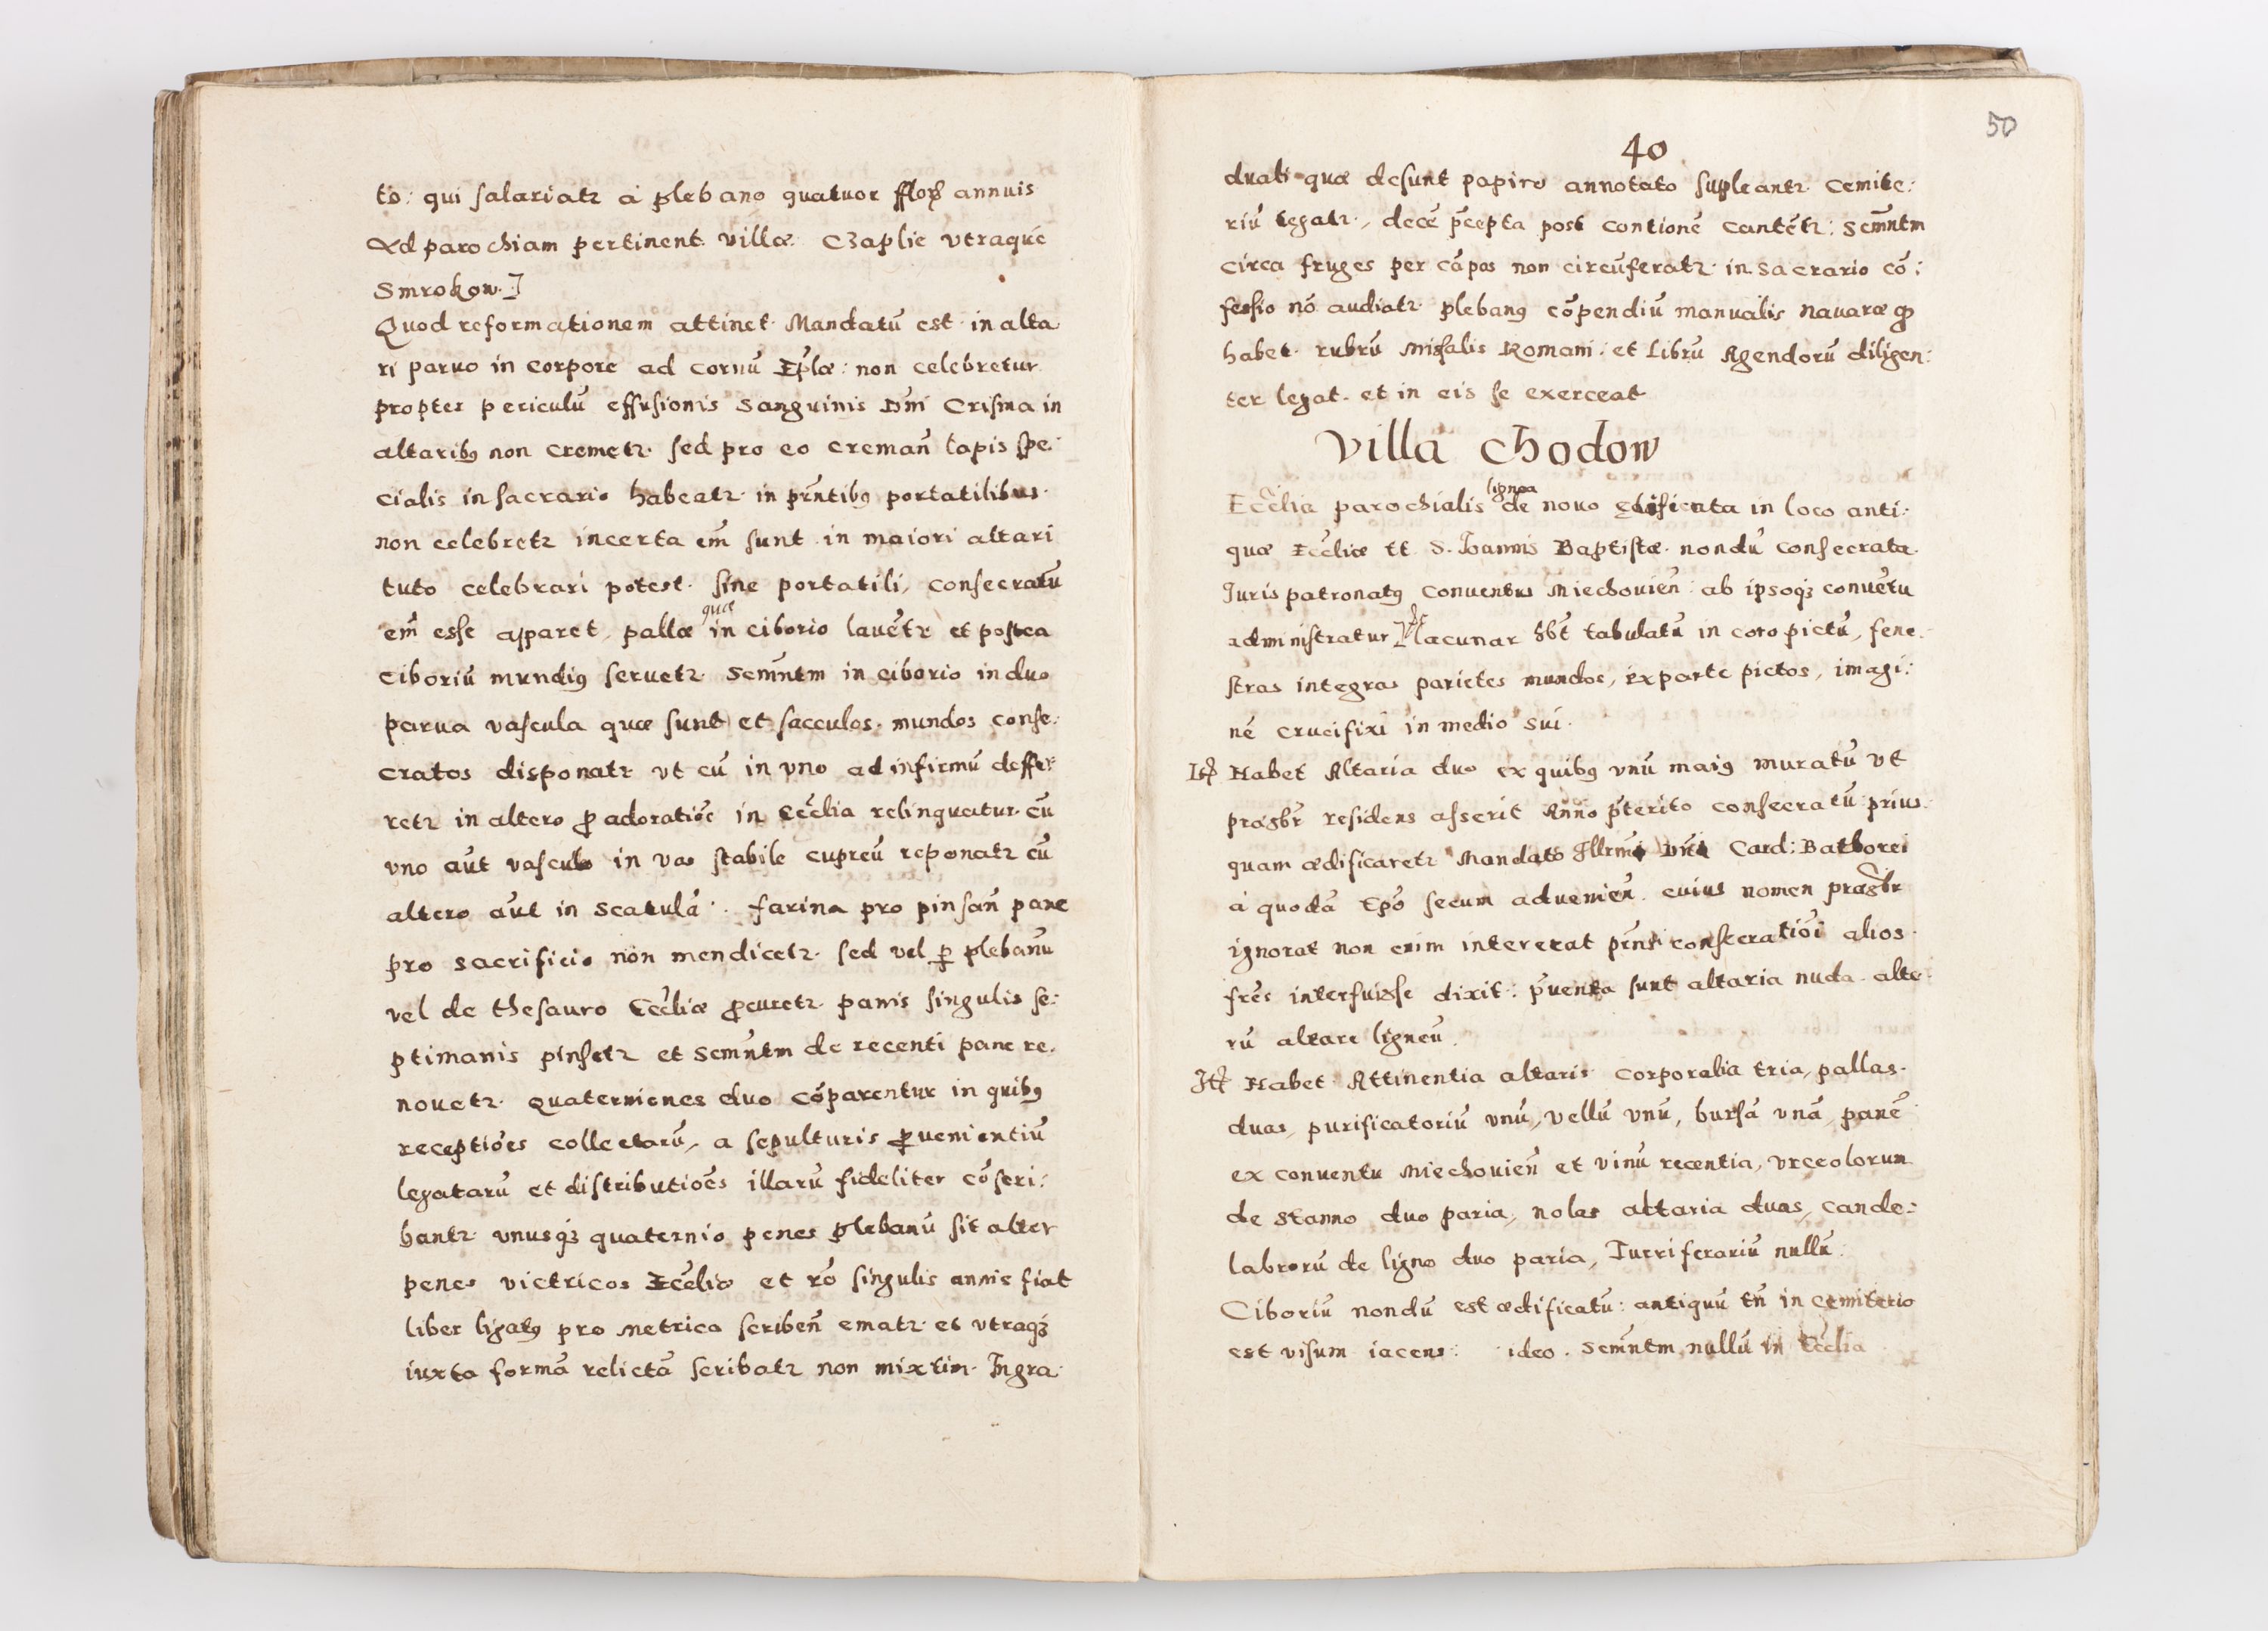 to: qui salariatr à plebano quatuor fflor annuis
Ad parochiam pertinent villæ Czaplie vtraque
Smrokow.]
Quod reformationem attinet Mandatū est in alta
ri paruo in corpore ad cornū Ep̄læ: non celebretur
propter periculū effusionis Sanguinis Dn̄i Crisma in
altaribȝ non cremetr. sed pro eo creman̄ lapis spe:
cialis in sacrario habeatr in prn̄tibȝ portatilibus
non celebretr incerta em̄ sunt in maiori altari
tuto celebrari potest sine portatili, consecratū
em̄ esse apparet, pallæ quæ in ciborio lauētr et postea
Ciboriū mundiȝ seruetr. Semn̄tm in ciborio in duo
parua vascula quæ sunt et sacculos mundos conse:
cratos disponatr vt cū in vno ad infirmū deffe:
retr in altero ꝓ adoratiōe in Eccl̄ia relinquatur. cū
vno aūt vasculo in vas stabile cupreū reponatr cū
altero aūt in scatulā. farina pro pinsan̄ pane
pro sacrificio non mendicetr. sed vel ꝑ plebanū
vel de thesauro Eccl̄iæ ꝓcuretr. panis singulis se:
ptimanis pinsetr et Semn̄tm de recenti pane re.
nouetr. Quaterniones duo cōparentur in quibȝ
receptiōes collectarū, a sepulturis ꝓuenientiū
legatarū et distributiōes illarū fideliter cōscri:
bantr vnusqȝ quaternio penes plebanū sit alter
penes victricos Eccl̄iæ et rō singulis annis fiat
liber ligatȝ pro metrica scriben̄ ematr et vtraqȝ
iuxta formā relictā scribatr non mixtim. Ingra
50
40
duali quæ desunt papiro annotato supleantr Cemite:
riū tegatr, decē p̄cepta post contionē cantētr: Semn̄tm
circa fruges per cāpos non circūferatr in Sacrario cō:
fessio nō audiatr plebanȝ cōpendiū manualis nauaræ
habet rubrū Missalis Romani: et Librū Agendorū diligen:
ter legat. et in eis se exerceat
Villa Chodow
Eccl̄ia parochialis lignea de nouo ædificata in loco anti:
quæ Eccl̄iæ tt. S. Joannis Baptistæ nondū consecrata.
Juris patronatȝ Conuentus Miechouien̄: ab ipsoqȝ conuētu
administratur lacunar hēt tabulatū in coro pictū, fene:
stras integras parietes mundos, exparte pictos, imagi:
nē crucifixi in medio sui.
It Habet Altaria duo ex quibȝ vnū maiȝ muratū vt
præsb̄r residens asserit Anno p̄terito consecratū prius
quam ædificaretr Mandato Illrmi Dn̄i Card: Bathorei
à quodā Epō secum aduenien̄ cuius nomen præsb̄r
ignorat non enim intererat prn̄ti consecratiōi alios
fr̄es interfuisse dixit: p̄uenta sunt altaria nuda. alte
rū altare ligneū.
It Habet Attinentia altaris Corporalia tria, pallas
duas, purificatoriū vnū, vellū vnū, bursā vnā, panē
ex conuentu Miechouien̄ et vinū recentia, vrceolorum
de stanno duo paria, nolas altaria duas, Cande:
labrorū de ligno duo paria, Turriferariū nullū:
Ciboriū nondū est ædificatū: antiquū tn̄ in cemiterio
est visum iacens: ideo. Semn̄tm nullū in Eccl̄ia